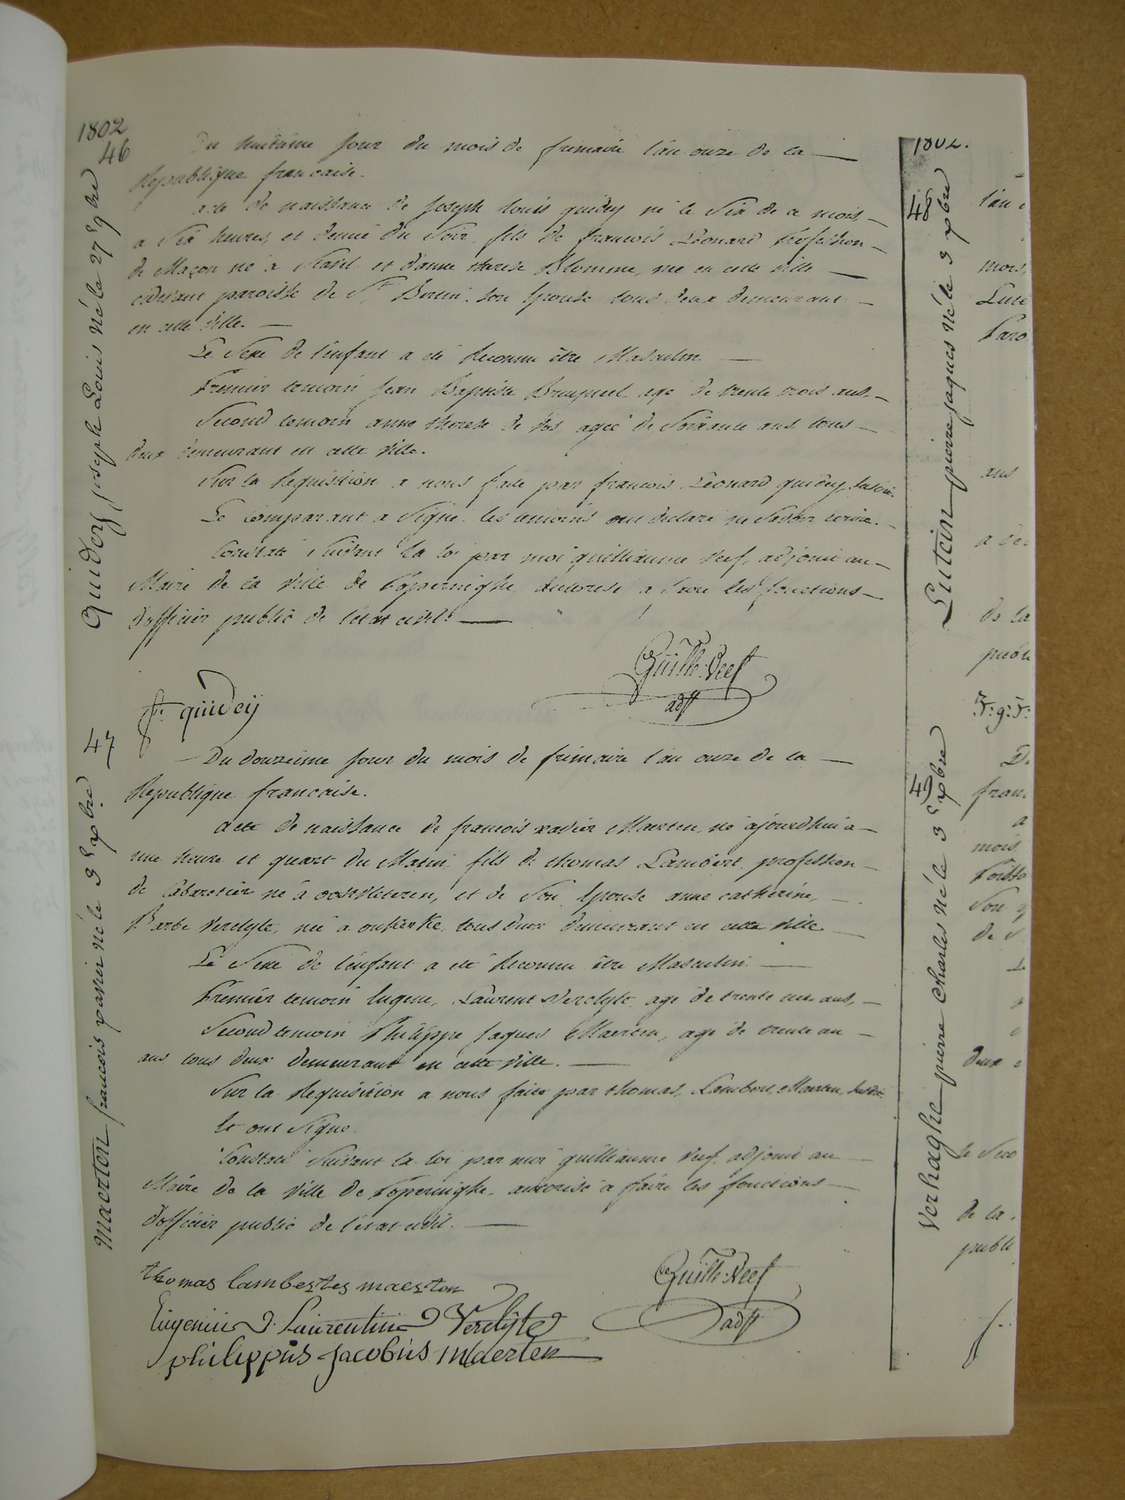 1802
46
Quidey joseph Louis né le 27 9bre
Du huitième jour du mois de frimaire l'an onze de la
République française.
acte de naissance de Joseph Louis quidey né le Six de ce mois
a Six heures et demie du Soir fils de francois Léonard profession
de Maçon né a et d'anne therese Blomme, née en cette ville
cidevant paroisse de St Bertin, son Epouse tous deux demeurant
en cette ville.
Le Sexe de l'enfant a été Reconnu être Masculin
Premier temoin Jean Baptiste agé de trente trois ans.
Second temoin anne therese de Vos agée de Soixante ans tous
deux demeurant en cette ville.
Sur la Requisition a nous faite par francois Léonard quidey
Le Comparant a Signé les temoins ont declaré ne Savoir ecrire.
Constaté Suivant la loi par moi guilliaume Neef, adjoint au
Maire de la Ville de Poperinghe autorisé a faire les fonctions
d'officier public de l'état civil.
Guill: Neef
adjt
f. quidey
47
Maerten francois xavier né le 3 xbre
Du douzieme jour du mois de frimaire l'an onze de la
République francaise.
Acte de naissance de francois xavier Maerten, né ajourdhui a
une heure et quart du Matin, fils de thomas Lambert profession
de Cabaretier né à oostvleteren, et de Son Epouse anne catherine
Barbe Verclyte, née a tous deux demeurant en cette ville
Le Sexe de l'enfant a été Reconnu être Masculin
Premier temoin Eugene, Laurent Verclyte, agé de trente un ans,
Second temoin Philippe Jaques Maerten, agé de trente un
ans tous deux demeurant en cette ville.
Sur la Requisition a nous faite par thomas, Lambert, Maerten,
Et ont Signé.
Constaté Suivant la loi par moi guilliaume Neef, adjoint au
Maire de la Ville de Poperinghe, autorisé a faire les fonctions
d'officier public de l'état civil.
thomas lambertes maerten
Eugenius Laurentius Verclyte
philippus jacobus Maerten
Guill: Neef
adjt
1802.
48
pierre jaques né le 3 xbre
49
Verhaghe pierre Charles né le 3 xbre
l'an
mois,
ans
de la
publi
fran
mois
Son
deux
de la
publi